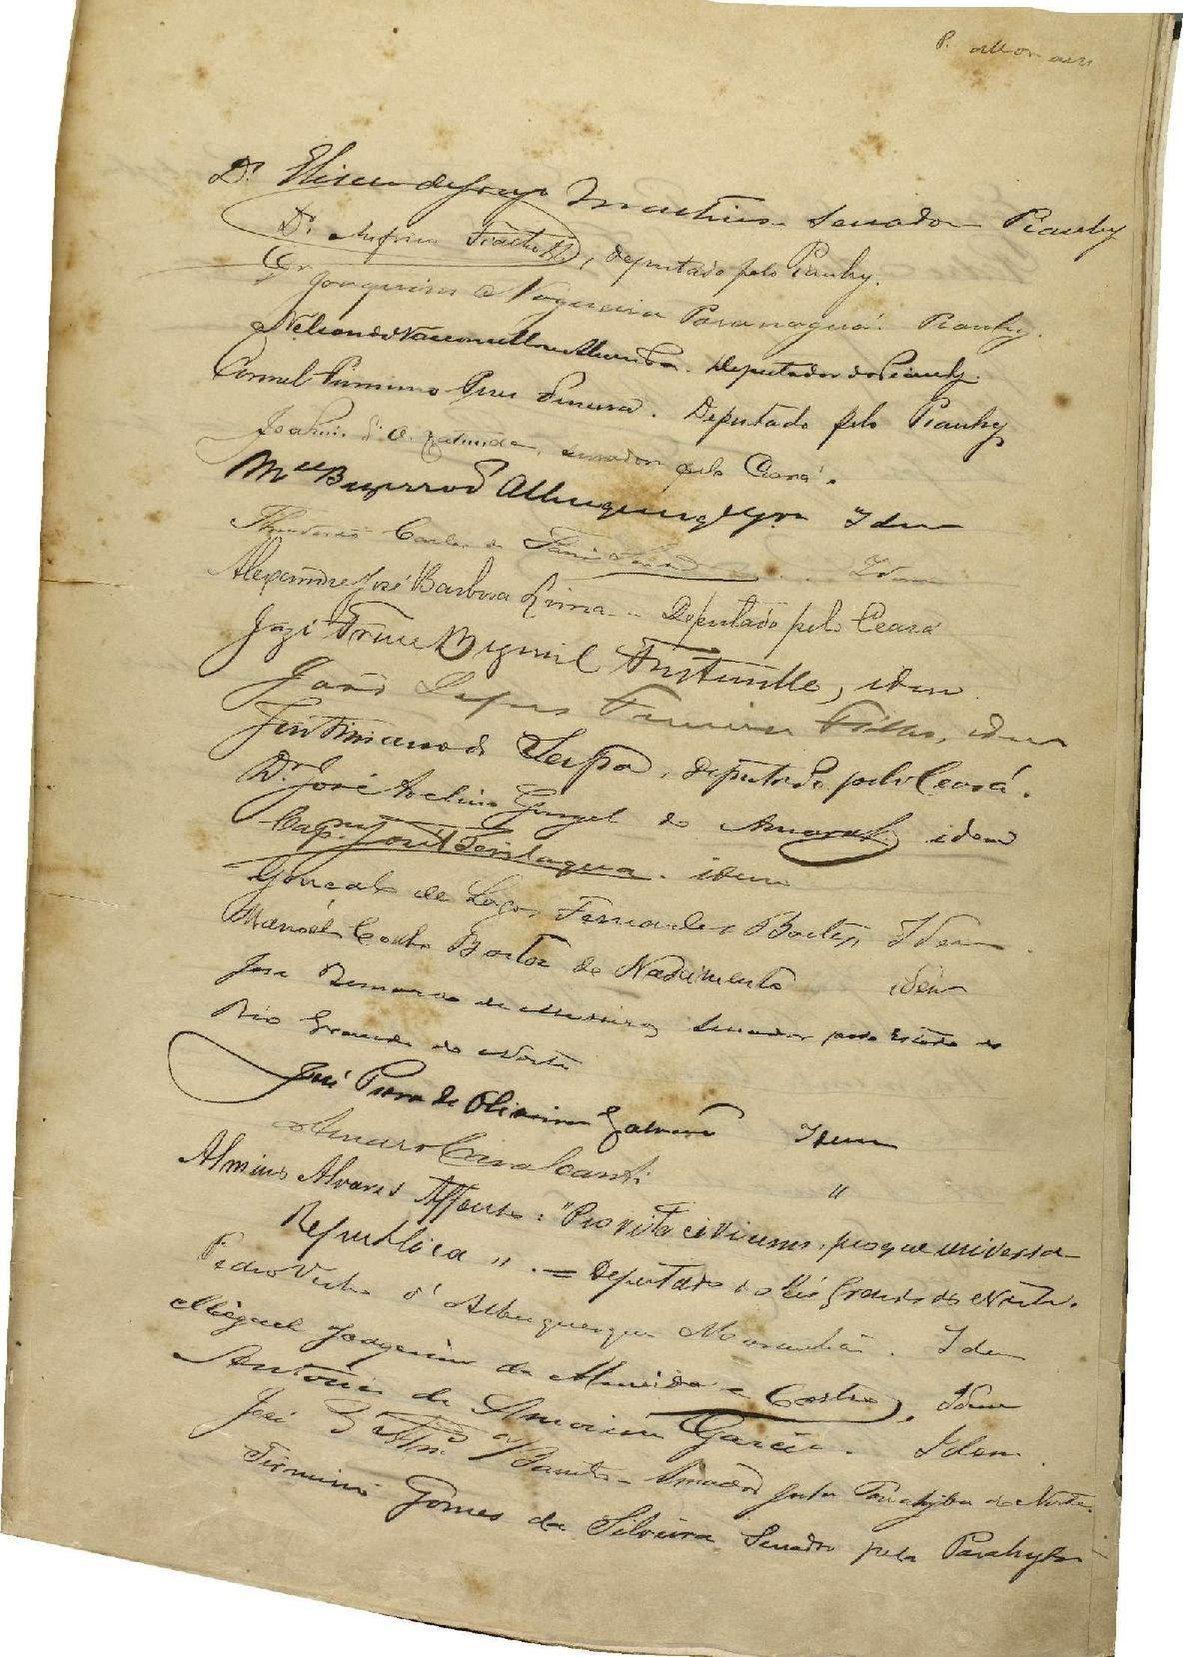 Dr. Eliseu de Souza Martins - Senador - Piauhy
Dr. Anfrisio Fialho, deputado pelo Piauhy.
Dr Joaquim Nogueira Paranaguá. Piauhy.
Nelson de Vasconcellos Almeida. Deputado do Piauhy.
Coronel Firmino Pires Ferreira. Deputado pelo Piauhy,
Joakim d'O. Catunda, senador pelo Ceará.
Mel Bezerra d'Albuquerque Jor Idem
Theodureto Carlos de Faria Souto Idem
Alexandre José Barbosa Lima - Deputado pelo Ceará
José Freire Bezerril Fontenelle, idem.
João Lopes Ferreira Filho, idem
Justiniano de Serpa, deputado pelo Ceará.
Dr. José Avelino Gurgel do Amaral, idem
Capm José Bevilaqua. idem
Gonçalo de Lagos Fernandes Bastos Idem
Manoel Coelho Bastos do Nascimento idem
José Bernardo de Medeiros, Senador pelo Estado do
Rio Grande do Norte
José Pedro de Oliveira Galvão Idem
Amaro Cavalcanti "
Almino Alvares Affonso: "Pro vita civium, proque universa
Republica". = Deputado do Rio Grande do Norte.
Pedro Velho d'Albuquerque Maranhão. Idem
Miguel Joaquim de Almeida e Castro, Idem
Antonio de Amorim Garcia. Idem.
José Senador pela Parahyba do Norte.
Firmino Gomes da Silveira Senador pela Parahyba